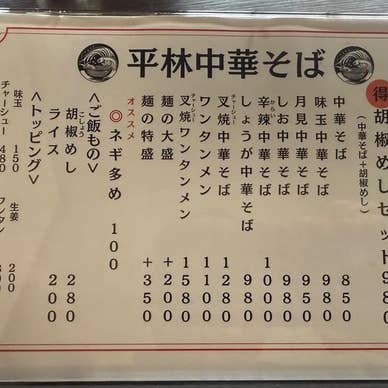 平林中華そば
得 胡椒めしセット980
(中華そば+胡椒めし)
中華そば 850
味玉中華そば
月見中華そば
しお中華そば
からい
辛辣中華そば
しょうが中華そば 980
チャーシュー
叉焼中華そば 1280
ワンタンメン
チャーシュー
叉焼ワンタンメン 1580
麺の大盛 +200
麺の特盛 +350
オススメ
◎ネギ多め 100
<ご飯もの>
こしょう
胡椒めし 280
ライス 200
<トッピング>
味玉 150 生姜 200
チャーシュー 480 ワンタン